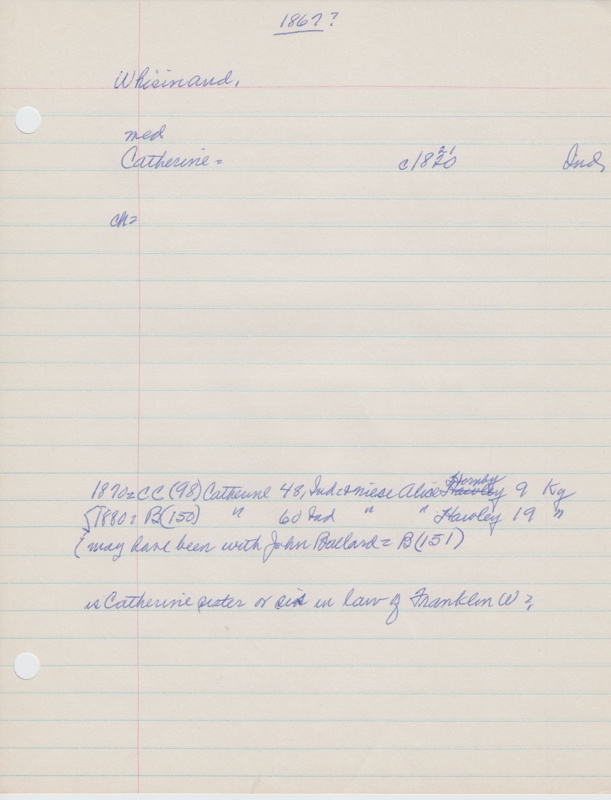 1867?
Whisinand,
med
Catherine = c1820 21 Ind,
ch=
1870=CC(98) Catherine 48, Ind + niese Alice Hawley Hornby 9 Ky
1880= B(150) " 60 Ind " " Hawley 19 "
(may have been with John Ballard = B(151)
is Catherine sister or sis in law of Franklin W?,